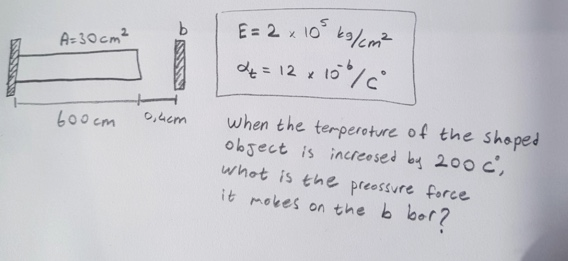 A=30cm²
b
600cm
0,4cm
E = 2 × 10⁵ kg/cm²
αt = 12 × 10⁻⁶/C°
When the temperature of the shaped
object is increased by 200 C°,
What is the preossure force
it makes on the b bar?